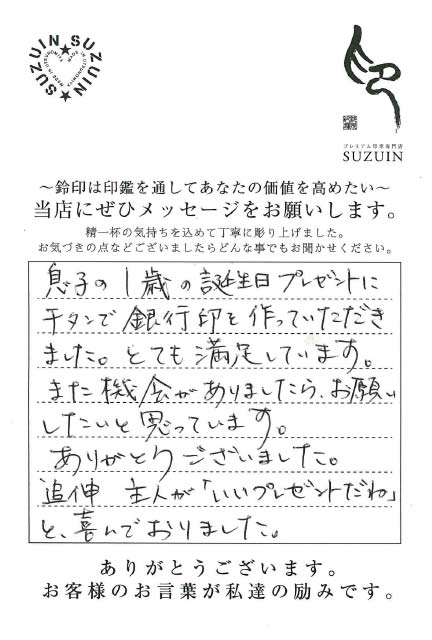 SUZUIN★SUZUIN★
プレミアム印章専門店
SUZUIN
～鈴印は印鑑を通してあなたの価値を高めたい～
当店にぜひメッセージをお願いします。
精一杯の気持ちを込めて丁寧に彫り上げました。
お気づきの点などございましたらどんな事でもお聞かせください。
息子の1歳の誕生日プレゼントに
チタンで銀行印を作っていただき
ました。とても満足しています。
また機会がありましたら、お願い
したいと思っています。
ありがとうございました。
追伸 主人が「いいプレゼントだね」
と、喜んでおりました。
ありがとうございます。
お客様のお言葉が私達の励みです。